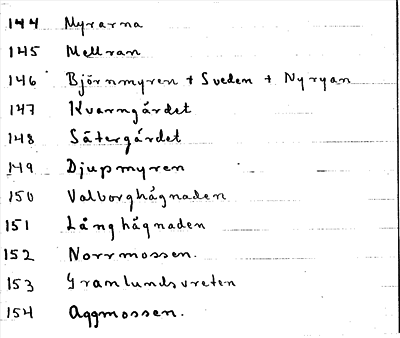 144 Myrarna
145 Mellran
146 Björnmyren + Sveden + Nyryan
147 Kvarngärdet
148 Sätergärdet
149 Djupmyren
150 Valborghägnaden
151 Långhägnaden
152 Norrmossen.
153 Granlundsvreten
154 Aggmossen.